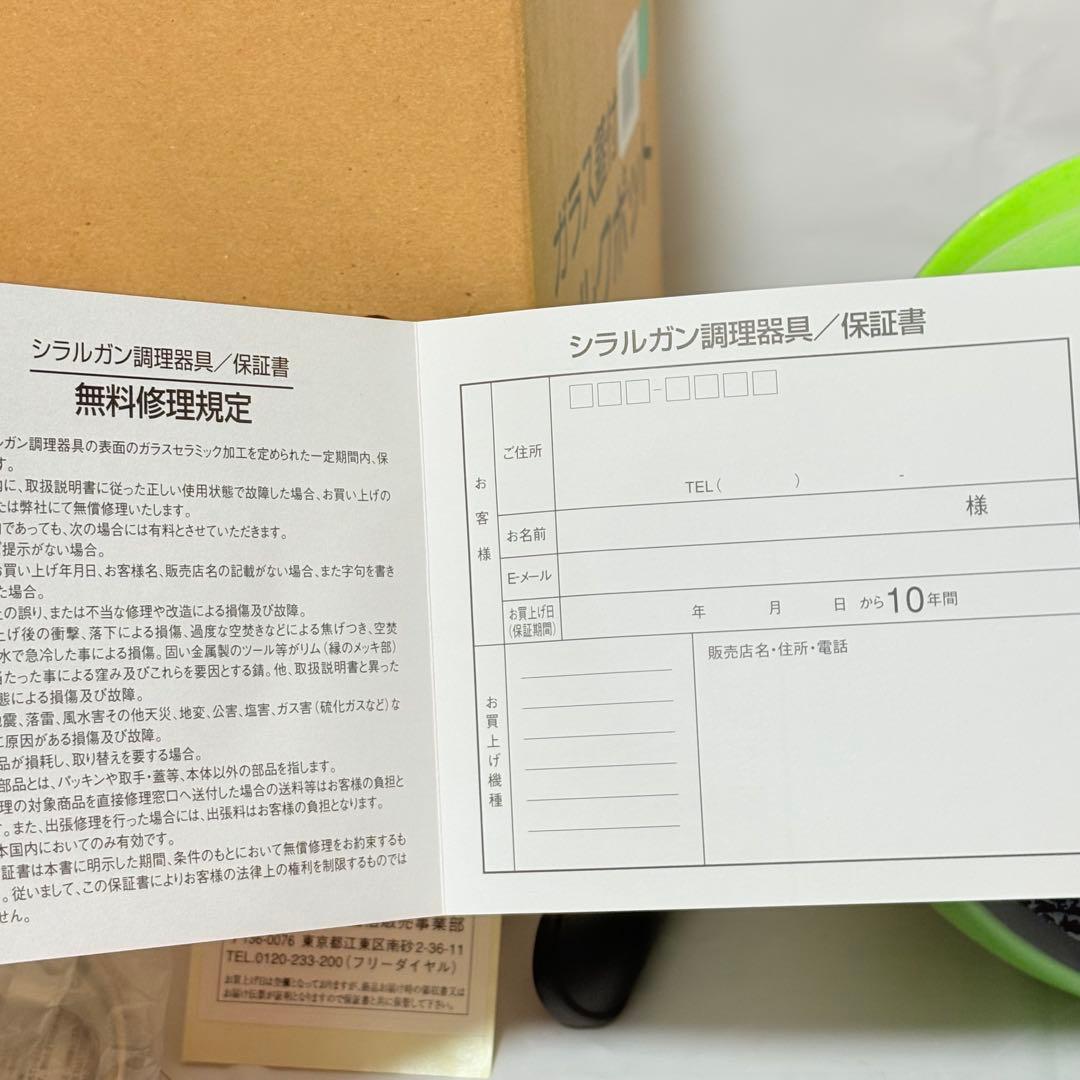 ガラス蓋付
シラルガン調理器具／保証書
無料修理規定
ルガン調理器具の表面のガラスセラミック加工を定められた一定期間内、保
す。
内に、取扱説明書に従った正しい使用状態で故障した場合、お買い上げの
たは弊社にて無償修理いたします。
であっても、次の場合には有料とさせていただきます。
ご提示がない場合。
お買い上げ年月日、お客様名、販売店名の記載がない場合、また字句を書き
た場合。
上の誤り、または不当な修理や改造による損傷及び故障。
上げ後の衝撃、落下による損傷、過度な空焚きなどによる焦げつき、空焚
水で急冷した事による損傷。固い金属製のツール等がリム（縁のメッキ部）
当たった事による窪み及びこれらを要因とする錆。他、取扱説明書と異った
態による損傷及び故障。
地震、落雷、風水害その他天災、地変、公害、塩害、ガス害（硫化ガスなど）な
に原因がある損傷及び故障。
品が損耗し、取り替えを要する場合。
部品とは、パッキンや取手・蓋等、本体以外の部品を指します。
理の対象商品を直接修理窓口へ送付した場合の送料等はお客様の負担と
す。また、出張修理を行った場合には、出張料はお客様の負担となります。
本国内においてのみ有効です。
証書は本書に明示した期間、条件のもとにおいて無償修理をお約束するも
。従いまして、この保証書によりお客様の法律上の権利を制限するものでは
せん。
シラルガン調理器具／保証書
お客様
ご住所
TEL（　　　）　　　-
お名前
様
E-メール
お買上げ日
（保証期間）
年　月　日 から10年間
お買上げ機種
販売店名・住所・電話
販売事業部
〒136-0076 東京都江東区南砂2-36-11
TEL.0120-233-200（フリーダイヤル）
お買上げ日は空欄となっておりますが、商品お届け時の領収書又は
お届け伝票が証明となりますので保証書と共に保管して下さい。